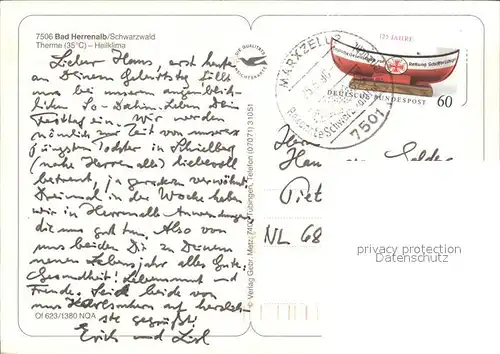 7506 Bad Herrenalb/Schwarzwald
Therme (35°C) – Heilklima
Lieber Hans, erst heute,
an Deinem Geburtstag fällt
uns bei unserem
So-Dahin-Leben Dein
Festtag ein. Wir werden
nämlich zur Zeit von unserer
jüngsten Tochter in Schielberg
(nahe Herrenalb) liebevoll
betreut, ja geradezu verwöhnt.
Dreimal in der Woche haben
wir in Herrenalb Anwendungen
die uns gut tun. Also von
uns beiden Dir zu Deinem
neuen Lebensjahr alles Gute,
Gesundheit! Lebensmut und
Freude. Seid beide von
uns herzlich-
ste gegrüßt!
Erich und Lisl
Of 623/1380 NQA
DIE QUALITÄTS
© Verlag Gebr. Metz, 7400 Tübingen, Telefon (07071) 31051
MARXZELL
7501
125 JAHRE
Rettung Schiffbrüchiger
DEUTSCHE BUNDESPOST
60
Herrn
Piet
NL 68
privacy protection
Datenschutz